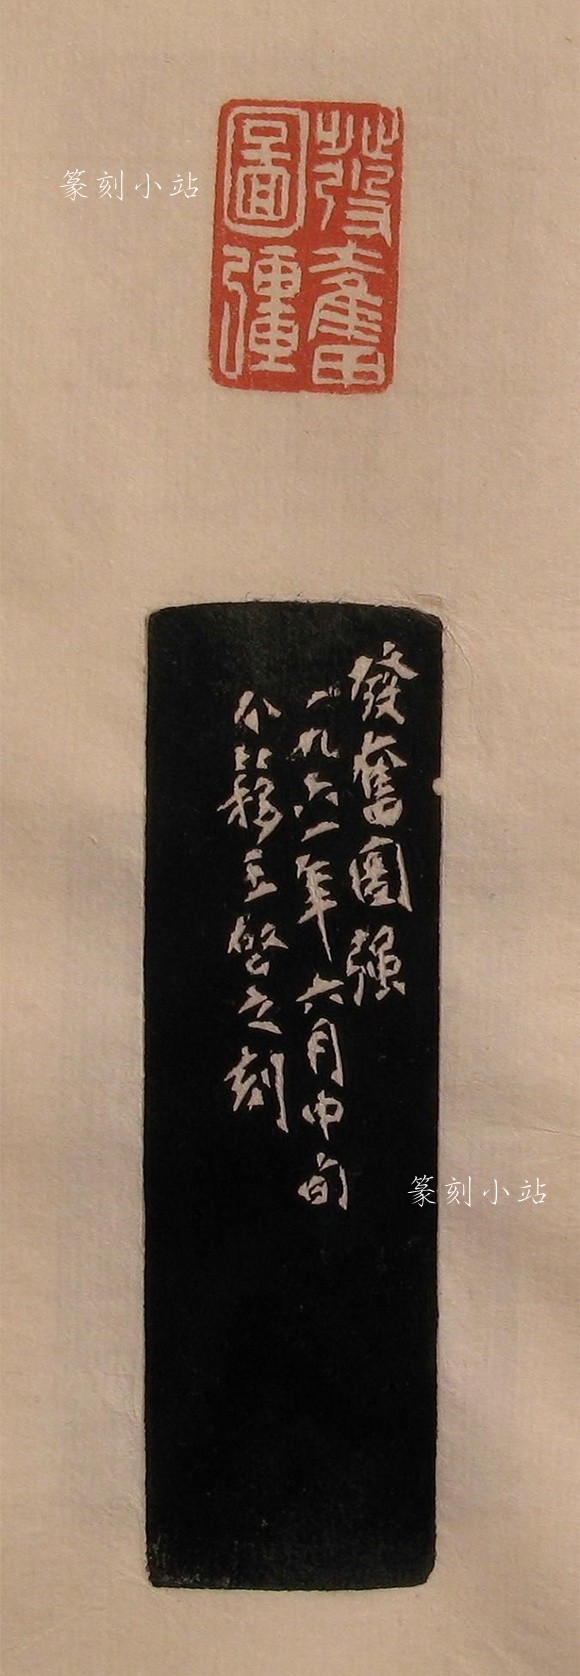 篆刻小站
發奮
圖彊
發奮圖强
一九六一年六月中旬
个簃王啟之刻
篆刻小站